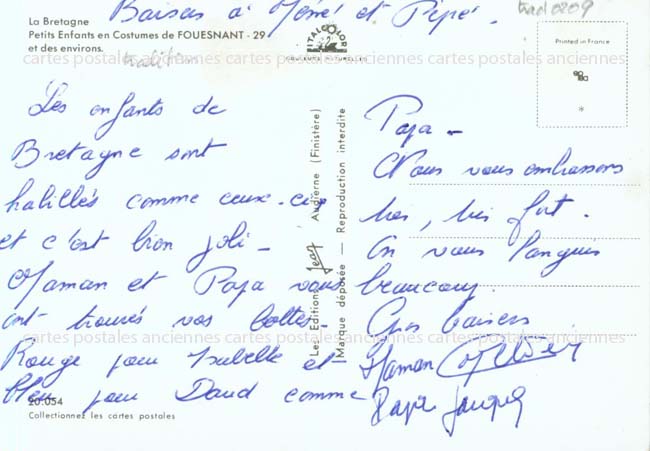 Baisers à Mémé et Pépé.
trad 0209
La Bretagne
Petits Enfants en Costumes de FOUESNANT - 29
et des environs.
tradition
COULEURS NATURELLES
Printed in France
*
cartes postales anciennes cartes postales anciennes cartes postales anciennes
Les enfants de
Bretagne sont
habillés comme ceux-ci
et c'est bien joli -
Maman et Papa vous
ont trouvés vos bottes -
Rouge pour Isabelle et
bleu pour David comme
20.054
Collectionnez les cartes postales
Les Editions Jean Audierne (Finistère)
Marque déposée — Reproduction interdite
Papa -
Nous vous embrassons
très, très fort.
On vous languis
beaucoup.
Gros baisers
Maman
Papa Jacques
cartes postales anciennes cartes postales anciennes cartes postales anciennes
cartes postales anciennes cartes postales anciennes cartes postales anciennes